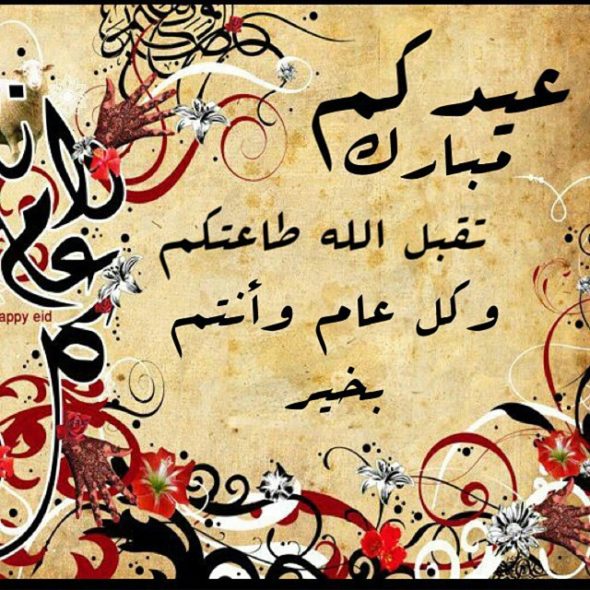 عيدكم
مبارك
تقبل الله طاعتكم
وكل عام وأنتم
بخير
عام
appy eid